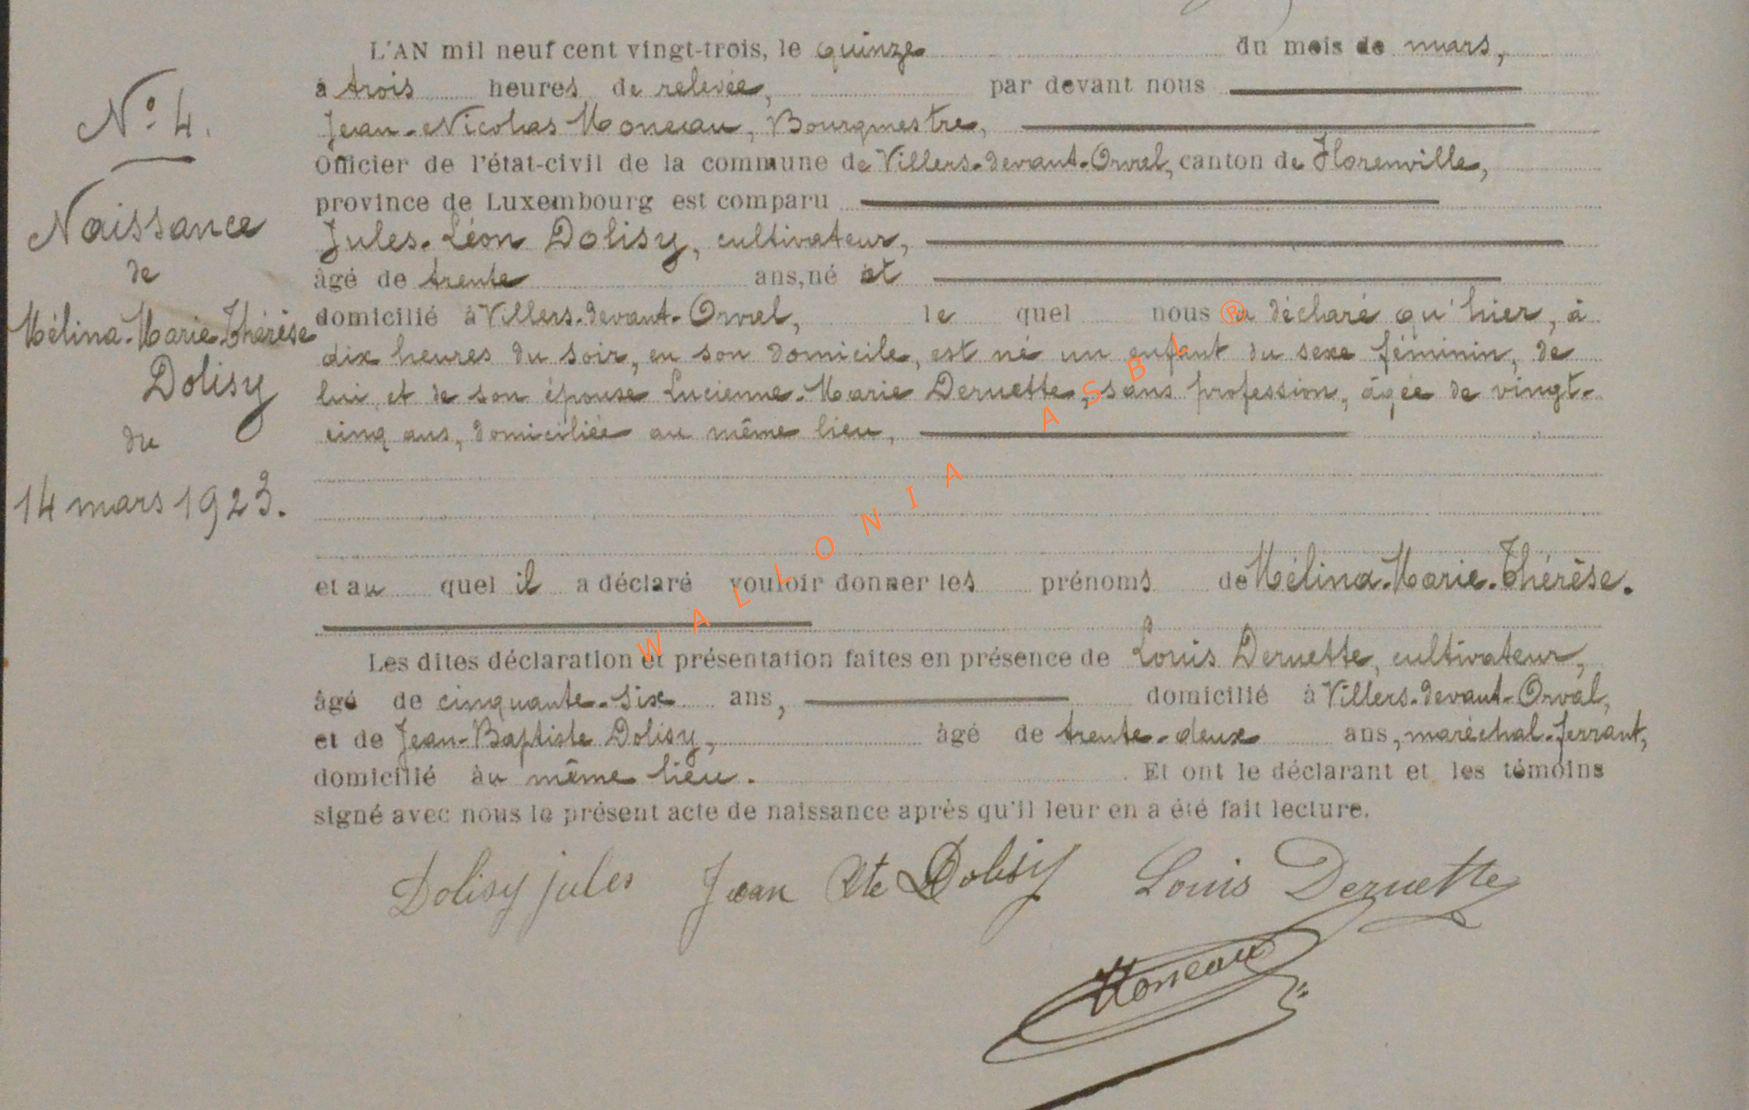 N° 4.
Naissance
de
Mélina-Marie-Thérèse
Dolisy
du
14 mars 1923.
L'AN mil neuf cent vingt-trois, le quinze du mois de mars,
à trois heures de relevée, par devant nous
Jean-Nicolas Moneau, Bourgmestre,
Officier de l'état-civil de la commune de Villers-devant-Orval, canton de Florenville,
province de Luxembourg est comparu
Jules-Léon Dolisy, cultivateur,
âgé de trente ans, né et
domicilié à Villers-devant-Orval, le quel nous a déclaré qu'hier, à
dix heures du soir, en son domicile, est né un enfant du sexe féminin, de
lui et de son épouse Lucienne-Marie Deruette, sans profession, âgée de vingt-
cinq ans, domiciliée au même lieu,
et au quel il a déclaré vouloir donner les prénoms de Mélina-Marie-Thérèse.
Les dites déclaration et présentation faites en présence de Louis Deruette, cultivateur,
âgé de cinquante-six ans, domicilié à Villers-devant-Orval,
et de Jean-Baptiste Dolisy, âgé de trente-deux ans, maréchal-ferrant,
domicilié au même lieu. Et ont le déclarant et les témoins
signé avec nous le présent acte de naissance après qu'il leur en a été fait lecture.
Dolisy jules Jean Bte Dolisy Louis Deruette
Moneau
WALLONIA ASBL ®